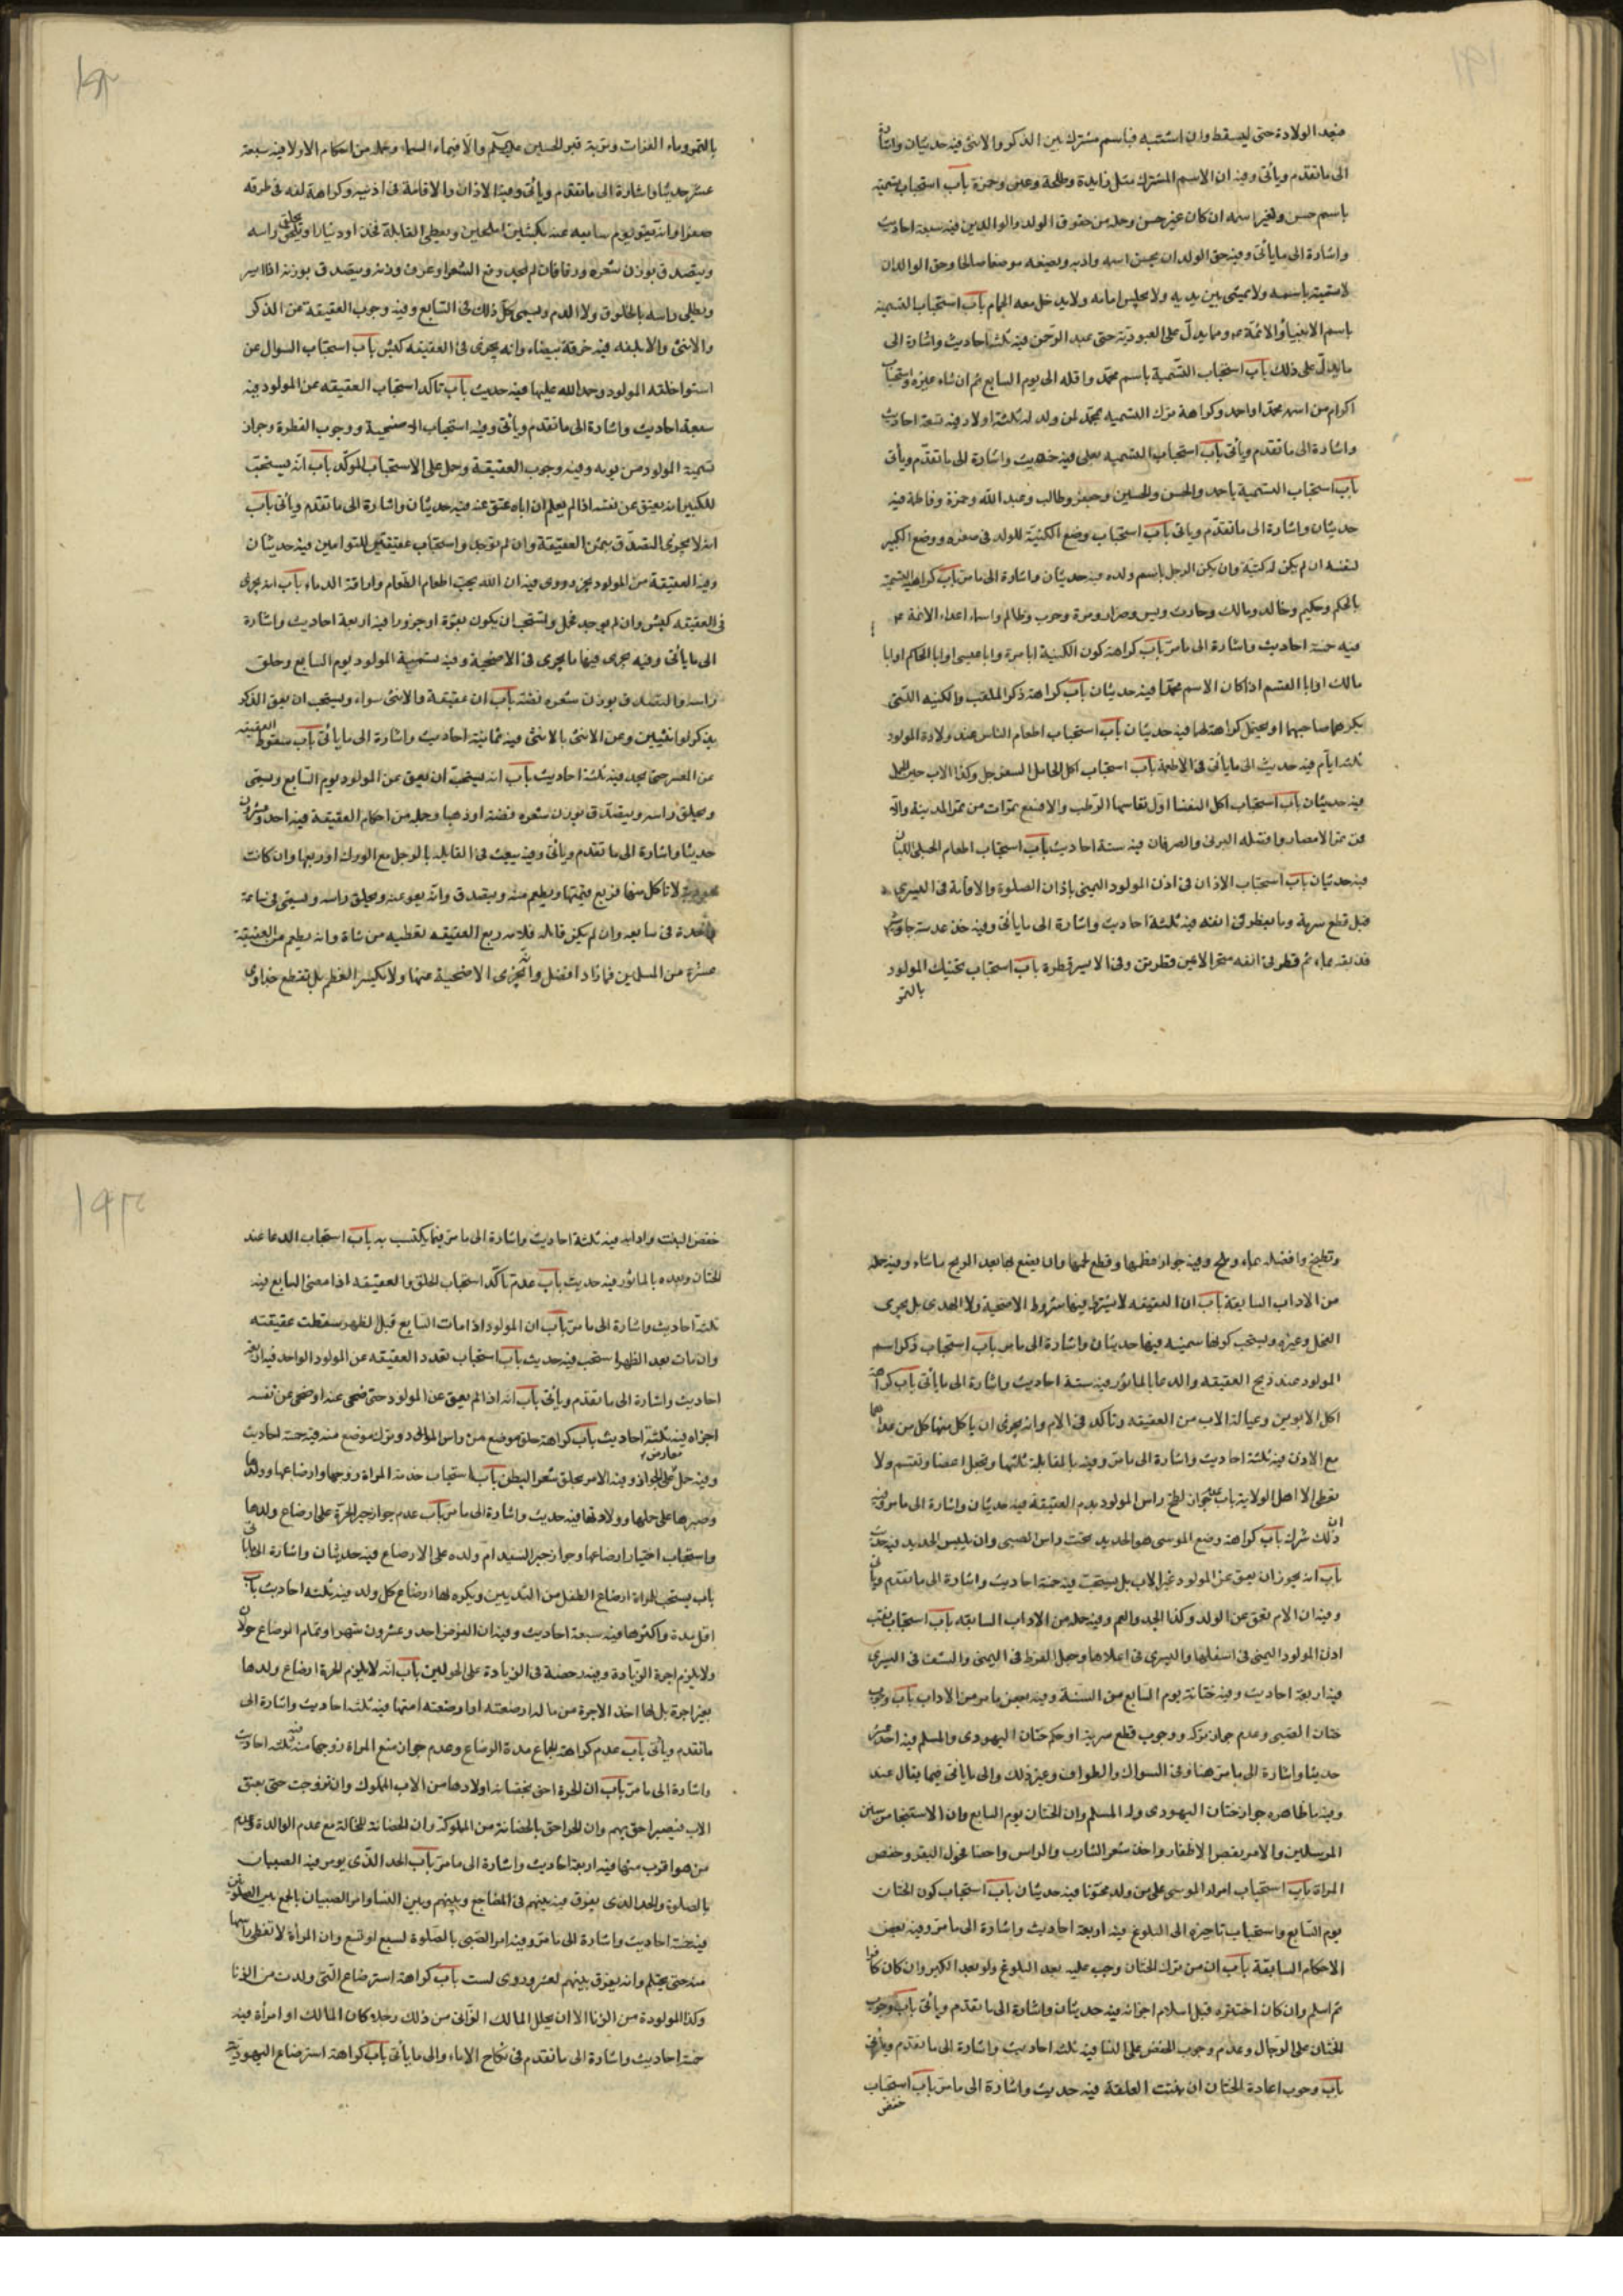 فبعد الولادة حتى ليسقط وان اشتبه فباسم مشترك بين الذكر والانثى فيه حديثان واشارة
الى ما تقدم ويأتى وفيه ان الاسم المشترك مثل زايدة وطلحة وعنبسه وحمزة باب استحباب تسميته
باسم حسن وتغير اسمه ان كان غير حسن وجملة من حقوق الولد والوالدين فيه سبعة احاديث
واشارة الى ما يأتى وفيه حق الولد ان يحسن اسمه وادبه ويضعه موضعا صالحا وحق الوالد ان
لا يسميه باسمه ولا يمشى بين يديه ولا يجلس امامه ولا يدخل معه الحمام باب استحباب التسمية
باسم الانبياء والائمة عم وما يدل على العبودية حتى عبد الرحمن فيه ثلثة احاديث واشارة الى
ما يدل على ذلك باب استحباب التسمية باسم محمد واقله الى يوم السابع ثم ان شاء غيره واستحباب
اكرام من اسمه محمد او احمد وكراهة ترك التسمية بمحمد لمن ولد له ثلثة اولاد فيه تسعة احاديث
واشارة الى ما تقدم ويأتى باب استحباب التسمية بعلى فيه حديث واشارة الى ما تقدم ويأتى
باب استحباب التسمية باحمد والحسن والحسين وجعفر وطالب وعبد الله وحمزة وفاطمة فيه
حديثان واشارة الى ما تقدم وياتى باب استحباب وضع الكنية للولد فى صغره ووضع الكبير
لنفسه ان لم يكن له كنية وان يكنى الرجل باسم ولده فيه حديثان واشارة الى ما مر باب كراهة التسمية
بالحكم وحكيم وخالد ومالك وحارث ويس وضرار ومرة وحرب وظالم واسماء اعداء الائمة عم
فيه خمسة احاديث واشارة الى ما مر باب كراهة كون الكنية ابا مرة وابا عيسى او ابا الحكم او ابا
مالك او ابا القسم اذا كان الاسم محمدا فيه حديثان باب كراهة ذكر اللقب والكنيه اللتى
يكرهما صاحبهما او يحتمل كراهته لها فيه حديثان باب استحباب اطعام الناس عند ولادة المولود
ثلثة ايام فيه حديث الى ما يأتى فى الاطعمة باب استحباب اكل الحامل السفرجل وكذا الاب حين الحمل
فيه حديثان باب استحباب اكل النفسا اول نفاسها الرطب والا فسبع تمرات من تمر المدينة والا
فمن تمر الامصار وافضله البرنى والصرفان فيه ستة احاديث باب استحباب اطعام الحبلى اللبان
فيه حديثان باب استحباب الاذان فى اذن المولود اليمنى باذان الصلوة والاقامة فى اليسرى
قبل قطع سرته وما يقطر فى انفه فيه ثلثة احاديث واشارة الى ما يأتى وفيه خذ عدسة جاوشير
فدیفه بماء ثم قطر فى انفه منخر الايمن قطرتين وفى الايسر قطرة باب استحباب تحنيك المولود
بالتمر
بالتمر وماء الفرات وتربة قبر الحسين عليه السلم والا فبماء السماء وجملة من احكام الاولاد فيه سبعة
عشر حديثا واشارة الى ما تقدم ويأتى وفيه الاذان والاقامة فى اذنيه وكراهة لفه فى خرقة
صفراء وانه يعق يوم سابعه عنه بكبشين املحين ويعطى القابلة فخذا او دينارا ويحلق راسه
ويتصدق بوزن شعره
ويطلى راسه بالخلوق ولا الدم ويسمى كل ذلك فى السابع وفيه وجوب العقيقة عن الذكر
والانثى والا يلفه فيه خرقة بيضاء وانه يجزى فى العقيقه كبش باب استحباب السوال عن
استواء خلقة المولود وحمد الله عليها فيه حديث باب تاكد استحباب العقيقه عن المولود فيه
سبعة احاديث واشارة الى ما تقدم ويأتى وفيه استحباب الاضحية ووجوب الفطرة وجواز
تسمية المولود من يومه وفيه وجوب العقيقة وحمل على الاستحباب المؤكد باب انه يستحب
للكبير ان يعق عن نفسه اذا لم يعلم ان اباه عق عنه فيه حديثان واشارة الى ما تقدم ويأتى باب
انه لا يجزى التصدق بثمن العقيقة وان لم توجد واستحباب عقيقتين للتوامين فيه حديثان
وفيه العقيقة من المولود يجز وروى فيه ان الله يحب اطعام الطعام واراقة الدماء باب انه يجزى
فى العقيقه كبش وان لم يوجد فحمل ويستحب ان يكون بقرة او جزورا فيه اربعة احاديث واشارة
الى ما يأتى وفيه يجزى فيها ما يجزى فى الاضحية وفيه تسمية المولود يوم السابع وحلق
راسه والتصدق بوزن شعره فضة باب ان عقيقة والانثى سواء ويستحب ان يعق الذكر
بذكر او انثيين وعن الانثى بالانثى فيه ثمانية احاديث واشارة الى ما يأتى باب سقوط العقيقة
عن المعسر حتى يجد فيه ثلثة احاديث باب انه يستحب ان يعق عن المولود يوم السابع ويسمى
ويحلق راسه ويتصدق بوزن شعره فضة او ذهبا وجملة من احكام العقيقة فيه احد وعشرون
حديثا واشارة الى ما تقدم ويأتى وفيه يبعث فى القابلة بالرجل مع الورك او ربعها وان كانت
يهودية لا تاكل منها فربع قيمتها ويطعم منه ويتصدق وانه يعق عنه ويحلق راسه ويسمى فى ساعة
واحدة فى سابعه وان لم يكن قابلة فلامه ربع العقيقه تعطيه من شاة وانه يطعم من العقيقة
عشرة من المسلمين فما زاد افضل وانه تجزى الاضحية عنها ولا يكسر العظم بل يقطع جداول
وتطبخ وافضله بماء وملح وفيه جواز عظمها وقطع لحمها وان يصنع لها بعد الذبح ما شاء وفيه جملة
من الاداب السابقة باب ان العقيقه لا يشترط فيها شروط الاضحية ولا الهدى بل يجزى
الفحل وغيره ويستحب كونها سمينه فيها حديثان واشارة الى ما مر باب استحباب ذكر اسم
المولود عند ذبح العقيقه والدعا بالماثور فيه ستة احاديث واشارة الى ما يأتى باب كراهة
اكل الابوين وعيال الاب من العقيقه وتاكد فى الام وانه يجزى ان ياكل منها كل من عداهما
مع الاذن فيه ثلثة احاديث واشارة الى ما مر وفيه بالقابلة ثلثها ويجعل اعضا وتقسم ولا
يعطى الا اهل الولاية باب عدم جواز لطخ راس المولود بدم العقيقة فيه حديثان واشارة الى ما مر وفيه
ان ذلك شرك باب كراهة وضع الموسى هو الحديد تحت راس الصبى وان يلبس الحديد فيه حديث
باب انه يجوز ان يعق عن المولود غير الاب بل يستحب فيه خمسة احاديث واشارة الى ما تقدم ويأتى
وفيه ان الام تعق عن الولد وكذا الجد والعم وفيه جملة من الاداب السابقه باب استحباب ثقب
اذن المولود اليمنى فى اسفلها واليسرى فى اعلاها وجعل القرط فى اليمنى والشنف فى اليسرى
فيه اربعة احاديث وفيه ختانه يوم السابع من السنة وفيه بعض ما مر من الاداب باب وجوب
ختان الصبى وعدم جواز تركه ووجوب قطع سريته او حكم ختان اليهودى والمسلم فيه احد عشر
حديثا واشارة الى ما مر هنا وفى السواك والطواف وغير ذلك والى ما ياتى فيما يقال عند
وفيه ما ظاهره جواز ختان اليهودى ولد المسلم وان الختان يوم السابع وان الاستنجا من سنن
المرسلين والامر بقص الاظفار واخذ شعر الشارب والراس واحصا فحول البقر وخفض
المراة باب استحباب امرار الموسى على من ولد مختونا فيه حديثان باب استحباب كون الختان
يوم السابع واستحباب تاخيره الى البلوغ فيه اربعة احاديث واشارة الى ما مر وفيه بعض
الاحكام السابقة باب ان من ترك الختان وجب عليه بعد البلوغ ولو بعد الكبر وان كان كافرا
ثم اسلم وان كان اختتنوه قبل اسلامه اجزائه فيه حديثان واشارة الى ما تقدم ويأتى باب وجوب
الختان على الرجال وعدم وجوب الخفض على النسا فيه ثلثة احاديث واشارة الى ما تقدم ويأتى
باب وجوب اعادة الختان ان نبتت الغلفة فيه حديث واشارة الى ما مر باب استحباب
خفض
خفض البنت وادابه فيه ثلثة احاديث واشارة الى ما مر فيما يكتسب به باب استحباب الدعا عند
الختان وبعده بالماثور فيه حديث باب عدم تاكد استحباب الحلق والعقيقه اذا مضى السابع فيه
ثلثة احاديث واشارة الى ما مر باب ان المولود اذا مات السابع قبل الظهر سقطت عقيقته
وان مات بعد الظهر استحب فيه حديث باب استحباب تعدد العقيقه عن المولود الواحد فيه اربعة
احاديث واشارة الى ما تقدم وياتى باب انه اذا لم يعق عن المولود حتى ضحى عنه او ضحى عن نفسه
اجزاه فيه ثلثة احاديث باب كراهة حلق موضع من راس المولود وترك موضع منه فيه خمسة احاديث
وفيه معارض حمل على الجواز وفيه الامر بحلق شعر البطن باب استحباب خدمة المراة زوجها وارضاعها ولدها
وصبرها على حملها وولادتها فيه حديث واشارة الى ما مر باب عدم جواز جبر الحرة على ارضاع ولدها
واستحباب اختيار ارضاعها وجواز جبر السيد ام ولده على الارضاع فيه حديثان واشارة الى ما يأتى
باب يستحب للمراة ارضاع الطفل من الثديين ويكره لها ارضاع كل ولد فيه ثلثة احاديث باب
اقل مدة واكثرها فيه سبعة احاديث وفيه ان الفرض احد وعشرون شهرا وتمام الرضاع حولان
ولا يلزم اجرة الزيادة وفيه رخصة فى الزيادة على الحولين باب انه لا يلزم الحرة ارضاع ولدها
بغير اجرة بل لها اخذ الاجرة من ماله ارضعته او ارضعته امتها فيه ثلثة احاديث واشارة الى
ما تقدم ويأتى باب عدم كراهة الجماع مدة الرضاع وعدم جواز منع المراة زوجها منه فيه ثلثة احاديث
واشارة الى ما مر باب ان الحرة احق بحضانة اولادها من الاب المملوك وان تزوجت حتى يعتق
الاب فيصير احق بهم وان الحرة احق بالحضانة من المملوكة وان الحضانة للخالة مع عدم الوالدة وعدم
من هو اقرب منها فيه اربعة احاديث واشارة الى ما مر باب الحد الذى يومر فيه الصبيان
بالصلوة والحد الذى يفرق فيه بينهم فى المضاجع وبينهم وبين النسا وامر الصبيان بالجمع بين الصلوتين
فيه ستة احاديث واشارة الى ما مر وفيه امر الصبى بالصلوة لسبع او تسع وان المراة لا تغطى راسها
منه حتى يحتلم وانه يفرق بينهم لعشر وروى لست باب كراهة استرضاع التى ولدت من الزنا
وكذا المولودة من الزنا الا ان يحلل المالك الزانى من ذلك رجلا كان المالك او امرأة فيه
خمسة احاديث واشارة الى ما تقدم فى نكاح الاماء والى ما يأتى باب كراهة استرضاع اليهودية